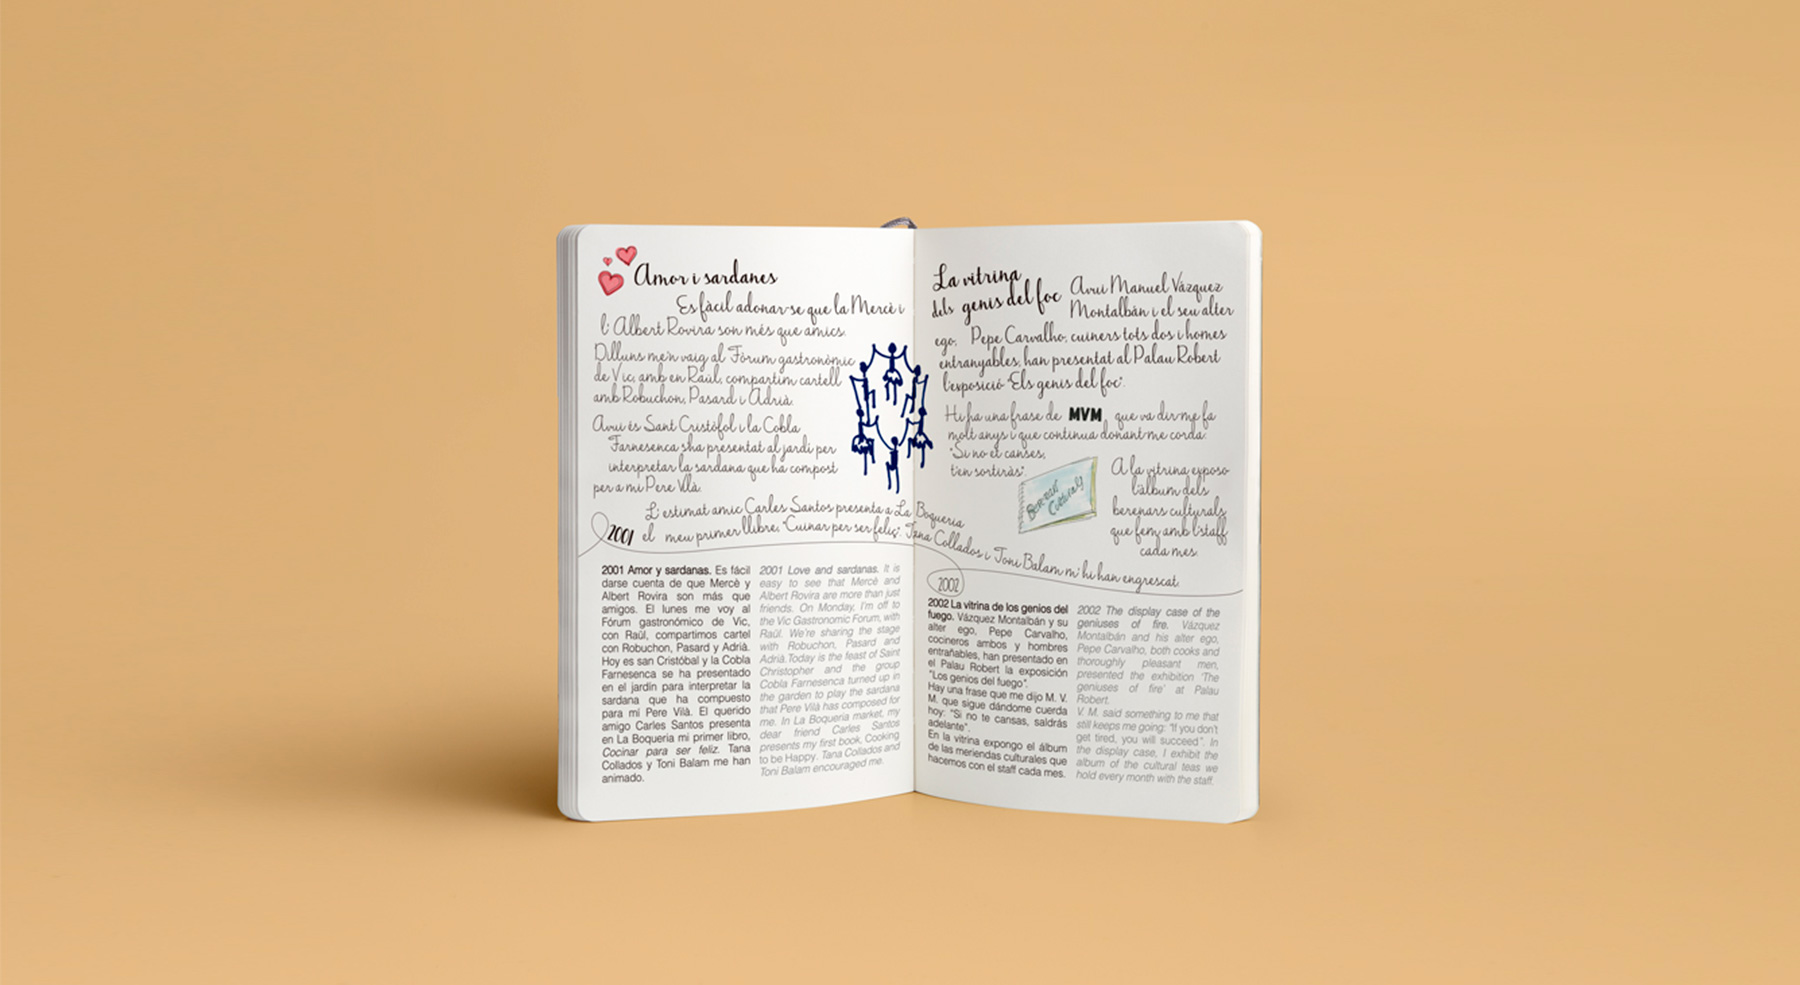 Amor i sardanes
Es fàcil adonar-se que la Mercè i
l'Albert Rovira son més que amics.
Dilluns me'n vaig al Fòrum gastronòmic
de Vic, amb en Raül, compartim cartell
amb Robuchon, Pasard i Adrià.
Avui és Sant Cristòfol i la Cobla
Farnesenca s'ha presentat al jardí per
interpretar la sardana que ha compost
per a mi Pere Vilà.
L'estimat amic Carles Santos presenta a La Boqueria
el meu primer llibre, "Cuinar per ser feliç". Tana Collados i Toni Balam m'hi han engrescat.
2001
2001 Amor y sardanas. Es fácil
darse cuenta de que Mercè y
Albert Rovira son más que
amigos. El lunes me voy al
Fórum gastronómico de Vic,
con Raül, compartimos cartel
con Robuchon, Pasard y Adrià.
Hoy es san Cristóbal y la Cobla
Farnesenca se ha presentado
en el jardín para interpretar la
sardana que ha compuesto
para mí Pere Vilà. El querido
amigo Carles Santos presenta
en La Boqueria mi primer libro,
Cocinar para ser feliz. Tana
Collados y Toni Balam me han
animado.
2001 Love and sardanas. It is
easy to see that Mercè and
Albert Rovira are more than just
friends. On Monday, I'm off to
the Vic Gastronomic Forum, with
Raül. We're sharing the stage
with Robuchon, Pasard and
Adrià.Today is the feast of Saint
Christopher and the group
Cobla Farnesenca turned up in
the garden to play the sardana
that Pere Vilà has composed for
me. In La Boqueria market, my
dear friend Carles Santos
presents my first book, Cooking
to be Happy. Tana Collados and
Toni Balam encouraged me.
La vitrina
dels genis del foc
Avui Manuel Vázquez
Montalbán i el seu alter
ego, Pepe Carvalho, cuiners tots dos i homes
entranyables, han presentat al Palau Robert
l'exposició "Els genis del foc".
Hi ha una frase de MVM, que va dir-me fa
molt anys i que continua donant-me corda:
"Si no et canses,
t'en sortiràs".
Berenars
Culturals
A la vitrina exposo
l'àlbum dels
berenars culturals
que fem amb l'staff
cada mes.
2002
2002 La vitrina de los genios del
fuego. Vázquez Montalbán y su
alter ego, Pepe Carvalho,
cocineros ambos y hombres
entrañables, han presentado en
el Palau Robert la exposición
"Los genios del fuego".
Hay una frase que me dijo M. V.
M. que sigue dándome cuerda
hoy: "Si no te cansas, saldrás
adelante".
En la vitrina expongo el álbum
de las meriendas culturales que
hacemos con el staff cada mes.
2002 The display case of the
geniuses of fire. Vázquez
Montalbán and his alter ego,
Pepe Carvalho, both cooks and
thoroughly pleasant men,
presented the exhibition 'The
geniuses of fire' at Palau
Robert.
V. M. said something to me that
still keeps me going: "If you don't
get tired, you will succeed". In
the display case, I exhibit the
album of the cultural teas we
hold every month with the staff.